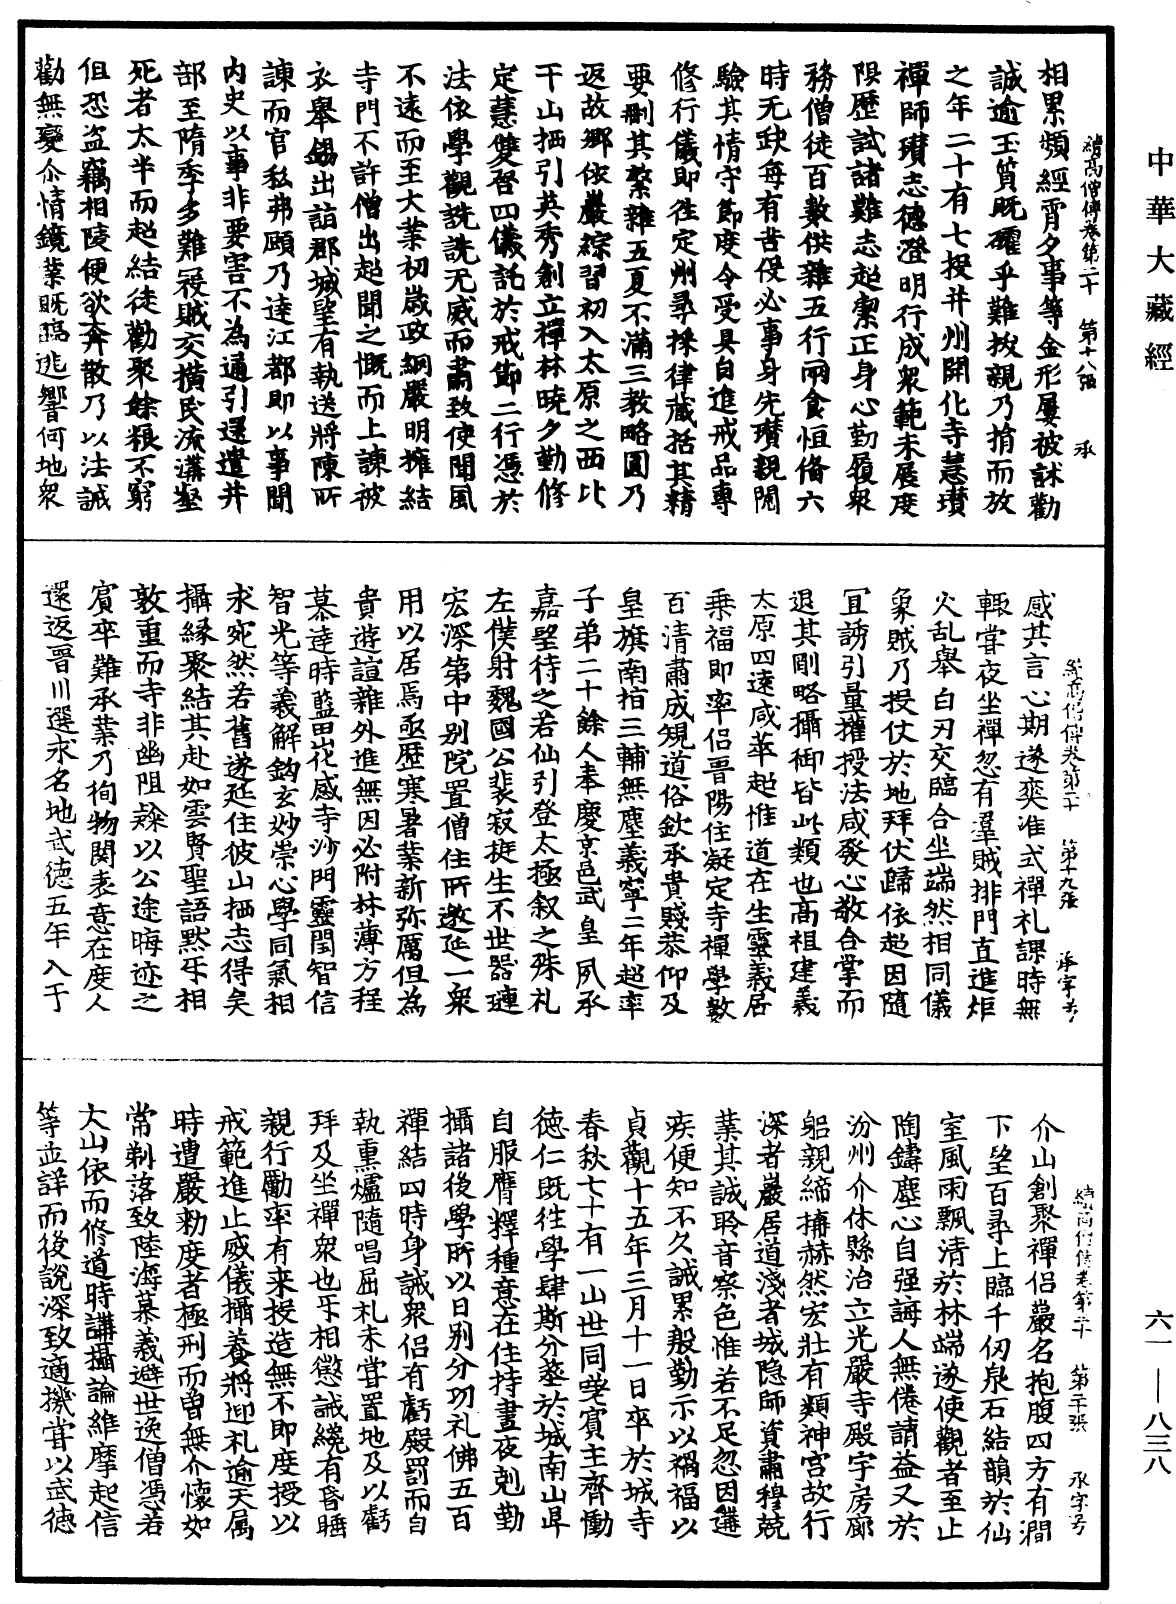 中華大藏經
續高僧傳卷第二十 第十八張 承
相累頻經宵夕事等金形屢被訹勸
誠逾玉質既確乎難拔親乃捐而放
之年二十有七投并州開化寺慧瓚
禪師瓚志德澄明行成衆範未展度
限歷試諸難志超潔正身心勤履衆
務僧徒百數供雜五行兩食恒俻六
時无缺每有苦伇必事身先瓚親閱
驗其情守節度令受具自進戒品專
修行儀即往定州尋採律藏括其精
要刪其繁雜五夏不滿三教略圓乃
返故鄉依巖綜習初入太原之西比
干山栖引英秀創立禪林曉夕勤修
定慧雙啓四儀託於戒節二行憑於
法依學觀詵詵无威而肅致使聞風
不遠而至大業初歲政綱嚴明擁結
寺門不許僧出超聞之慨而上諫被
衣舉錫出詣郡城望有執送將陳所
諫而官私弗顧乃達江都即以事聞
內史以事非要害不為通引還遣并
部至隋季多難冦賊交橫民流溝壑
死者太半而超結徒勸聚餘粮不窮
但恐盜竊相陵便欲奔散乃以法誡
勸無變尒情鏡業既臨逃響何地衆
續高僧傳卷第二十 第十九張 承字号
感其言心期遂奕准式禪礼課時無
輟嘗夜坐禪忽有羣賊排門直進炬
火乱舉白刃交臨合坐端然相同儀
象賊乃投仗於地拜伏歸依超因隨
冝誘引量權授法咸發心敬合掌而
退其剛略攝御皆此類也高祖建義
太原四遠咸萃超惟道在生靈義居
乘福即率侶晋陽住凝定寺禪學數
百清肅成規道俗欽承貴賤恭仰及
皇旗南指三輔無塵義寧二年超率
子弟二十餘人奉慶京邑武皇夙承
嘉望待之若仙引登太極叙之殊礼
左僕射魏國公裴寂挺生不世器璉
宏深第中別院置僧住所邀延一衆
用以居焉亟歷寒暑業新弥厲但為
貴遊諠雜外進無因必附林薄方程
慕達時藍田化感寺沙門靈閏智信
智光等義解鈎玄妙崇心學同氣相
求宛然若舊遂延住彼山栖志得矣
攝緣聚結其赴如雲賢聖語黙𠃔相
敦重而寺非幽阻雜以公途晦迹之
賓卒難承業乃徇物關表意在度人
還返晋川選求名地武德五年入于
續高僧傳卷第二十 第二十張 承字号
介山創聚禪侶巖名抱腹四方有澗
下望百尋上臨千仞泉石結韻於仙
室風雨飄清於林端遂使觀者至止
陶鑄塵心自强誨人無倦請益又於
汾州介休縣治立光嚴寺殿宇房廊
躬親締搆赫然宏壯有類神宮故行
深者巖居道淺者城隠師資肅穆兢
業其誠聆音察色惟若不足忽因遘
疾便知不久誡累殷勤示以禍福以
貞觀十五年三月十一日卒於城寺
春秋七十有一山世同嗟賓主齊慟
德仁既往學肆斯分葬於城南山阜
自服膺釋種意在住持晝夜剋勤
攝諸後學所以日別分功礼佛五百
禪結四時身誡衆侶有虧殿罰而自
執熏爐隨唱屈礼未甞置地及以虧
拜及坐禪衆也𠃔相懲誡纔有昏睡
親行勵率有来投造無不即度授以
戒範進止威儀攝養將迎礼逾天属
時遭嚴勑度者極刑而曽無介懷如
常剃落致陸海慕義避世逸僧憑若
大山依而修道時講攝論維摩起信
等並詳而後說深致適機甞以武德
六一——八三八